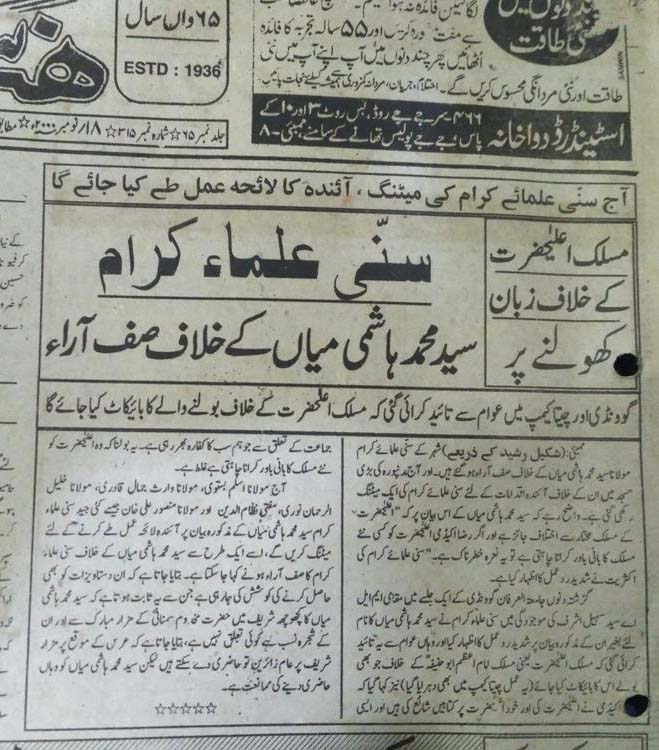 ۶۵ واں سال
ESTD : 1936
جلد نمبر ۶۵ ☆ شمارہ نمبر ۳۱۵ ☆ ۱۸/نومبر ۲۰۰۰ء ☆ مطابق
طاقت
سے مفت ورنہ کورس اور ۵۵ سالہ تجربہ کا فائدہ
اٹھائیں پھر چند دنوں میں آپ اپنے آپ میں نئی
طاقت اور نئی مردانگی محسوس کریں گے۔ احتلام، جریان، مردانہ کمزوری
SANWIN
۴۶۶ سر جے جے روڈ، بس روٹ ۳ اور ۱۰ کے
پاس، جے جے پولیس تھانے کے سامنے، ممبئی۔ ۸
اسٹینڈرڈ دواخانہ
آج سنّی علمائے کرام کی میٹنگ، آئندہ کا لائحہ عمل طے کیا جائے گا
مسلک اعلیٰحضرت
کے خلاف زبان
کھولنے پر
سنّی علماء کرام
سید محمد ہاشمی میاں کے خلاف صف آراء
گوونڈی اور چیتا کیمپ میں عوام سے تائید کرائی گئی کہ مسلک اعلیٰحضرت کے خلاف بولنے والے کا بائیکاٹ کیا جائے گا
ممبئی: (شکیل رشید کے ذریعے) شہر کے سنی علمائے کرام
مولانا سید محمد ہاشمی میاں کے خلاف صف آراء ہو گئے ہیں۔ اور آج مدنپورہ کی بڑی
مسجد میں ان کے خلاف آئندہ اقدامات کے لئے سنی علمائے کرام کی ایک میٹنگ
رکھی گئی ہے۔ واضح رہے کہ سید محمد ہاشمی میاں کے اس بیان پر کہ "اعلیٰحضرت
کے مسلک مختار سے اختلاف جائز ہے اور اگر رضا اکیڈمی اعلیٰحضرت کو کسی نئے
مسلک کا بانی باور کرانا چاہتی ہے تو یہ نعرہ خطرناک ہے۔" سنی علمائے کرام کی
اکثریت نے شدید ردعمل کا اظہار کیا ہے۔
گزشتہ دنوں جامعۃ العرفان گوونڈی کے ایک جلسے میں مقامی ایم ایل
اے سید سہیل اشرف کی موجودگی میں سنی علماء کرام نے سید محمد ہاشمی میاں کا نام
لئے بغیر ان کے مذکورہ بیان پر شدید ردعمل کا اظہار کیا اور وہاں عوام سے یہ تائید
کرائی گئی کہ مسلک اعلیٰحضرت یعنی مسلک امام اعظم ابو حنیفہؒ کے خلاف جو بھی
بولے اس کا بائیکاٹ کیا جائے (یہ عمل چیتا کیمپ میں بھی دہرایا گیا) نیز کہا گیا کہ
اکیڈمی نے اعلیٰحضرت کی اور خود اعلیٰحضرت پر کتابیں شائع کی ہیں اور ایسی
جماعت کے تعلق سے جو ہم سب کا کفارہ بھر رہی ہے۔ یہ بولنا کہ وہ اعلیٰحضرت کو
نئے مسلک کا بانی باور کرانا چاہتی ہے غلط ہے۔
آج مولانا اسلم بستوی، مولانا وارث جمال قادری، مولانا خلیل
الرحمان نوری، مفتی نظام الدین اور مولانا منصور علی خان جیسے کئی جید سنی علماء
کرام سید محمد ہاشمی میاں کے مذکورہ بیان پر آئندہ لائحہ عمل طے کرنے کے لئے
میٹنگ کریں گے، اسے ایک طرح سے سید محمد ہاشمی میاں کے خلاف سنی علماء
کرام کا صف آراء ہونے کہا جا سکتا ہے۔ بتایا جاتا ہے کہ ان دستاویزات کو بھی
حاصل کرنے کی کوشش کی جا رہی ہے جن سے یہ ثابت ہوتا ہے کہ سید محمد ہاشمی
میاں کا کچھوچھہ شریف میں حضرت مخدوم سمنانیؒ کے مزار مبارک سے اور ان
کے شجرہ نسب سے کوئی تعلق نہیں ہے، بتایا جاتا ہے کہ عرس کے موقع پر مزار
شریف پر عام زائرین تو حاضری دے سکتے ہیں لیکن سید محمد ہاشمی میاں کو وہاں
حاضری دینے کی ممانعت ہے۔
☆☆☆☆☆